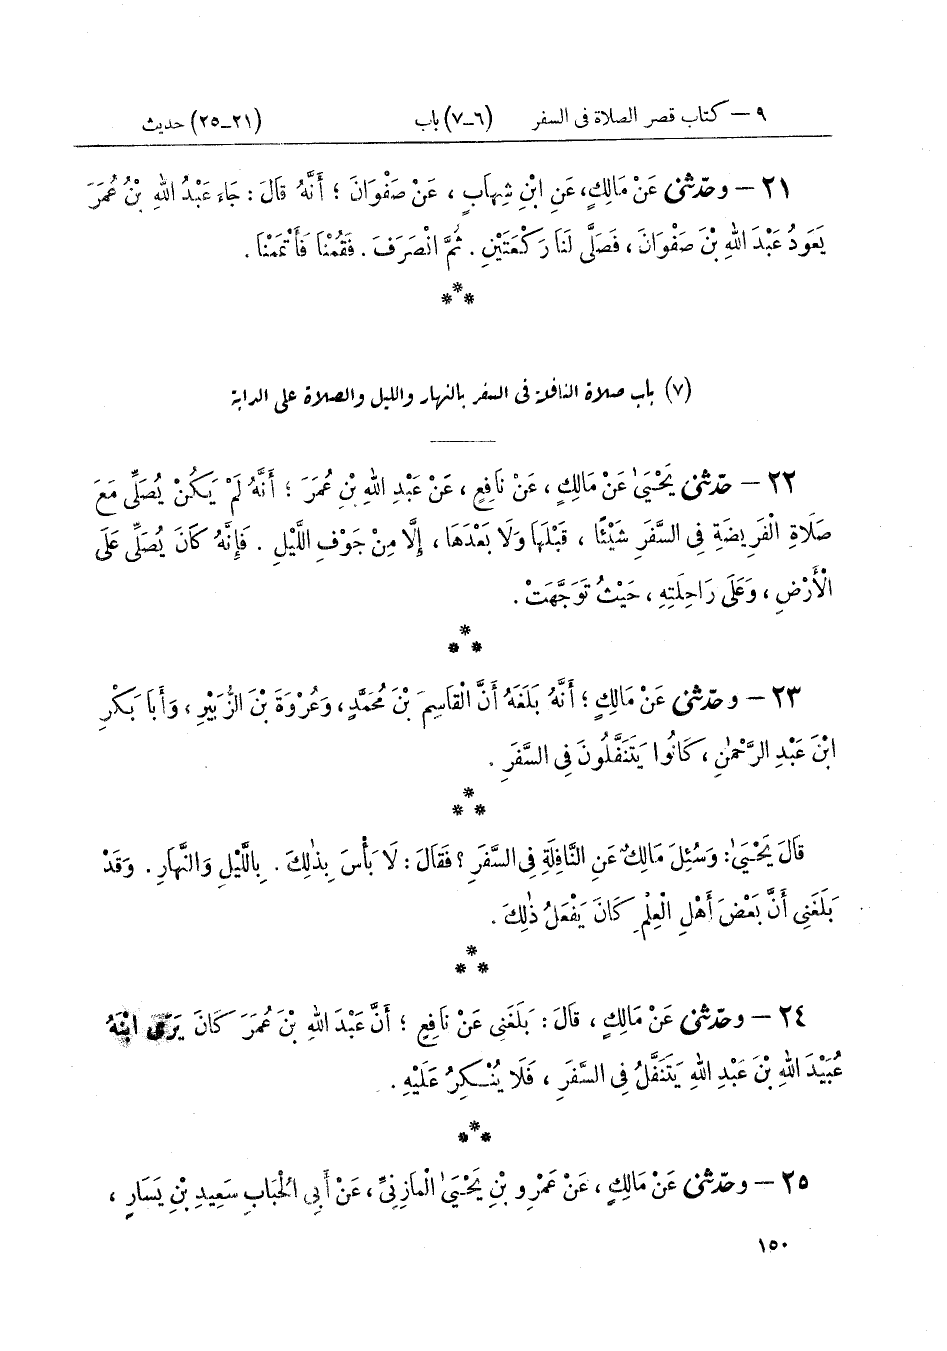 ٩ – كتاب قصر الصلاة فى السفر (٦–٧) باب (٢١–٢٥) حديث
٢١ – وحدّثنى عَنْ مَالِكٍ، عَنِ ابْنِ شِهَابٍ، عَنْ صَفْوَانَ؛ أَنَّهُ قَالَ: جَاءَ عَبْدُ اللهِ بْنُ عُمَرَ
يَعُودُ عَبْدَ اللهِ بْنَ صَفْوَانَ، فَصَلَّى لَنَا رَكْعَتَيْنِ. ثُمَّ انْصَرَفَ. فَقُمْنَا فَأَتْمَمْنَا.
***
(٧) باب صلاة النافلة فى السفر بالنهار والليل والصلاة على الدابة
٢٢ – حدّثنى يَحْيَىٰ عَنْ مَالِكٍ، عَنْ نَافِعٍ، عَنْ عَبْدِ اللهِ بْنِ عُمَرَ؛ أَنَّهُ لَمْ يَكُنْ يُصَلِّى مَعَ
صَلَاةِ الْفَرِيضَةِ فِى السَّفَرِ شَيْئًا، قَبْلَهَا وَلَا بَعْدَهَا، إِلَّا مِنْ جَوْفِ اللَّيْلِ. فَإِنَّهُ كَانَ يُصَلِّى عَلَى
الْأَرْضِ، وَعَلَى رَاحِلَتِهِ، حَيْثُ تَوَجَّهَتْ.
***
٢٣ – وحدّثنى عَنْ مَالِكٍ؛ أَنَّهُ بَلَغَهُ أَنَّ الْقَاسِمَ بْنَ مُحَمَّدٍ، وَعُرْوَةَ بْنَ الزُّبَيْرِ، وَأَبَا بَكْرِ
ابْنَ عَبْدِ الرَّحْمٰنِ، كَانُوا يَتَنَفَّلُونَ فِى السَّفَرِ.
***
قَالَ يَحْيَىٰ: وَسُئِلَ مَالِكٌ عَنِ النَّافِلَةِ فِى السَّفَرِ؟ فَقَالَ: لَا بَأْسَ بِذٰلِكَ. بِاللَّيْلِ وَالنَّهَارِ. وَقَدْ
بَلَغَنِى أَنَّ بَعْضَ أَهْلِ الْعِلْمِ كَانَ يَفْعَلُ ذٰلِكَ.
***
٢٤ – وحدّثنى عَنْ مَالِكٍ، قَالَ: بَلَغَنِى عَنْ نَافِعٍ؛ أَنَّ عَبْدَ اللهِ بْنَ عُمَرَ كَانَ يَرَى ابْنَهُ
عُبَيْدَ اللهِ بْنَ عَبْدِ اللهِ يَتَنَفَّلُ فِى السَّفَرِ، فَلَا يُنْكِرُ عَلَيْهِ.
***
٢٥ – وحدّثنى عَنْ مَالِكٍ، عَنْ عَمْرِو بْنِ يَحْيَىٰ الْمَازِنِىِّ، عَنْ أَبِى الْحُبَابِ سَعِيدِ بْنِ يَسَارٍ،
١٥٠